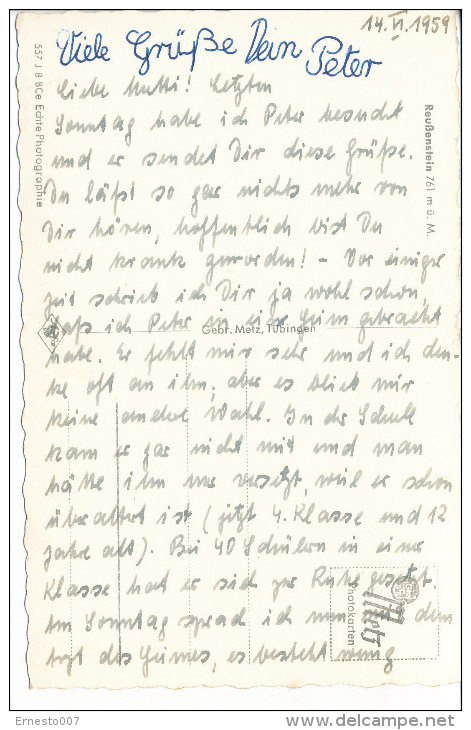 14. VI. 1959
Viele Grüße Dein Peter
Liebe Mutti! Letzten
Sonntag habe ich Peter besucht
und er sendet Dir diese Grüße.
Du läßt so gar nichts mehr von
Dir hören, hoffentlich bist Du
nicht krank geworden! – Vor einiger
Zeit schrieb ich Dir ja wohl schon,
daß ich Peter in ein Heim gebracht
habe. Er fehlt mir sehr und ich den-
ke oft an ihn, aber es blieb mir
keine andere Wahl. In der Schule
kam er gar nicht mit und man
hätte ihn nur versetzt, weil er schon
überaltert ist (jetzt 4. Klasse und 12
Jahre alt). Bei 40 Schülern in einer
Klasse hat er sich zur Ruhe gesetzt.
Am Sonntag sprach ich nun dem
arzt des Heimes, es besteht wenig
557 J 8 BCe Echte Photographie
Reußenstein 761 m ü. M.
Gebr. Metz, Tübingen
Metz
Photokarten
Ernesto007
delcampe.net